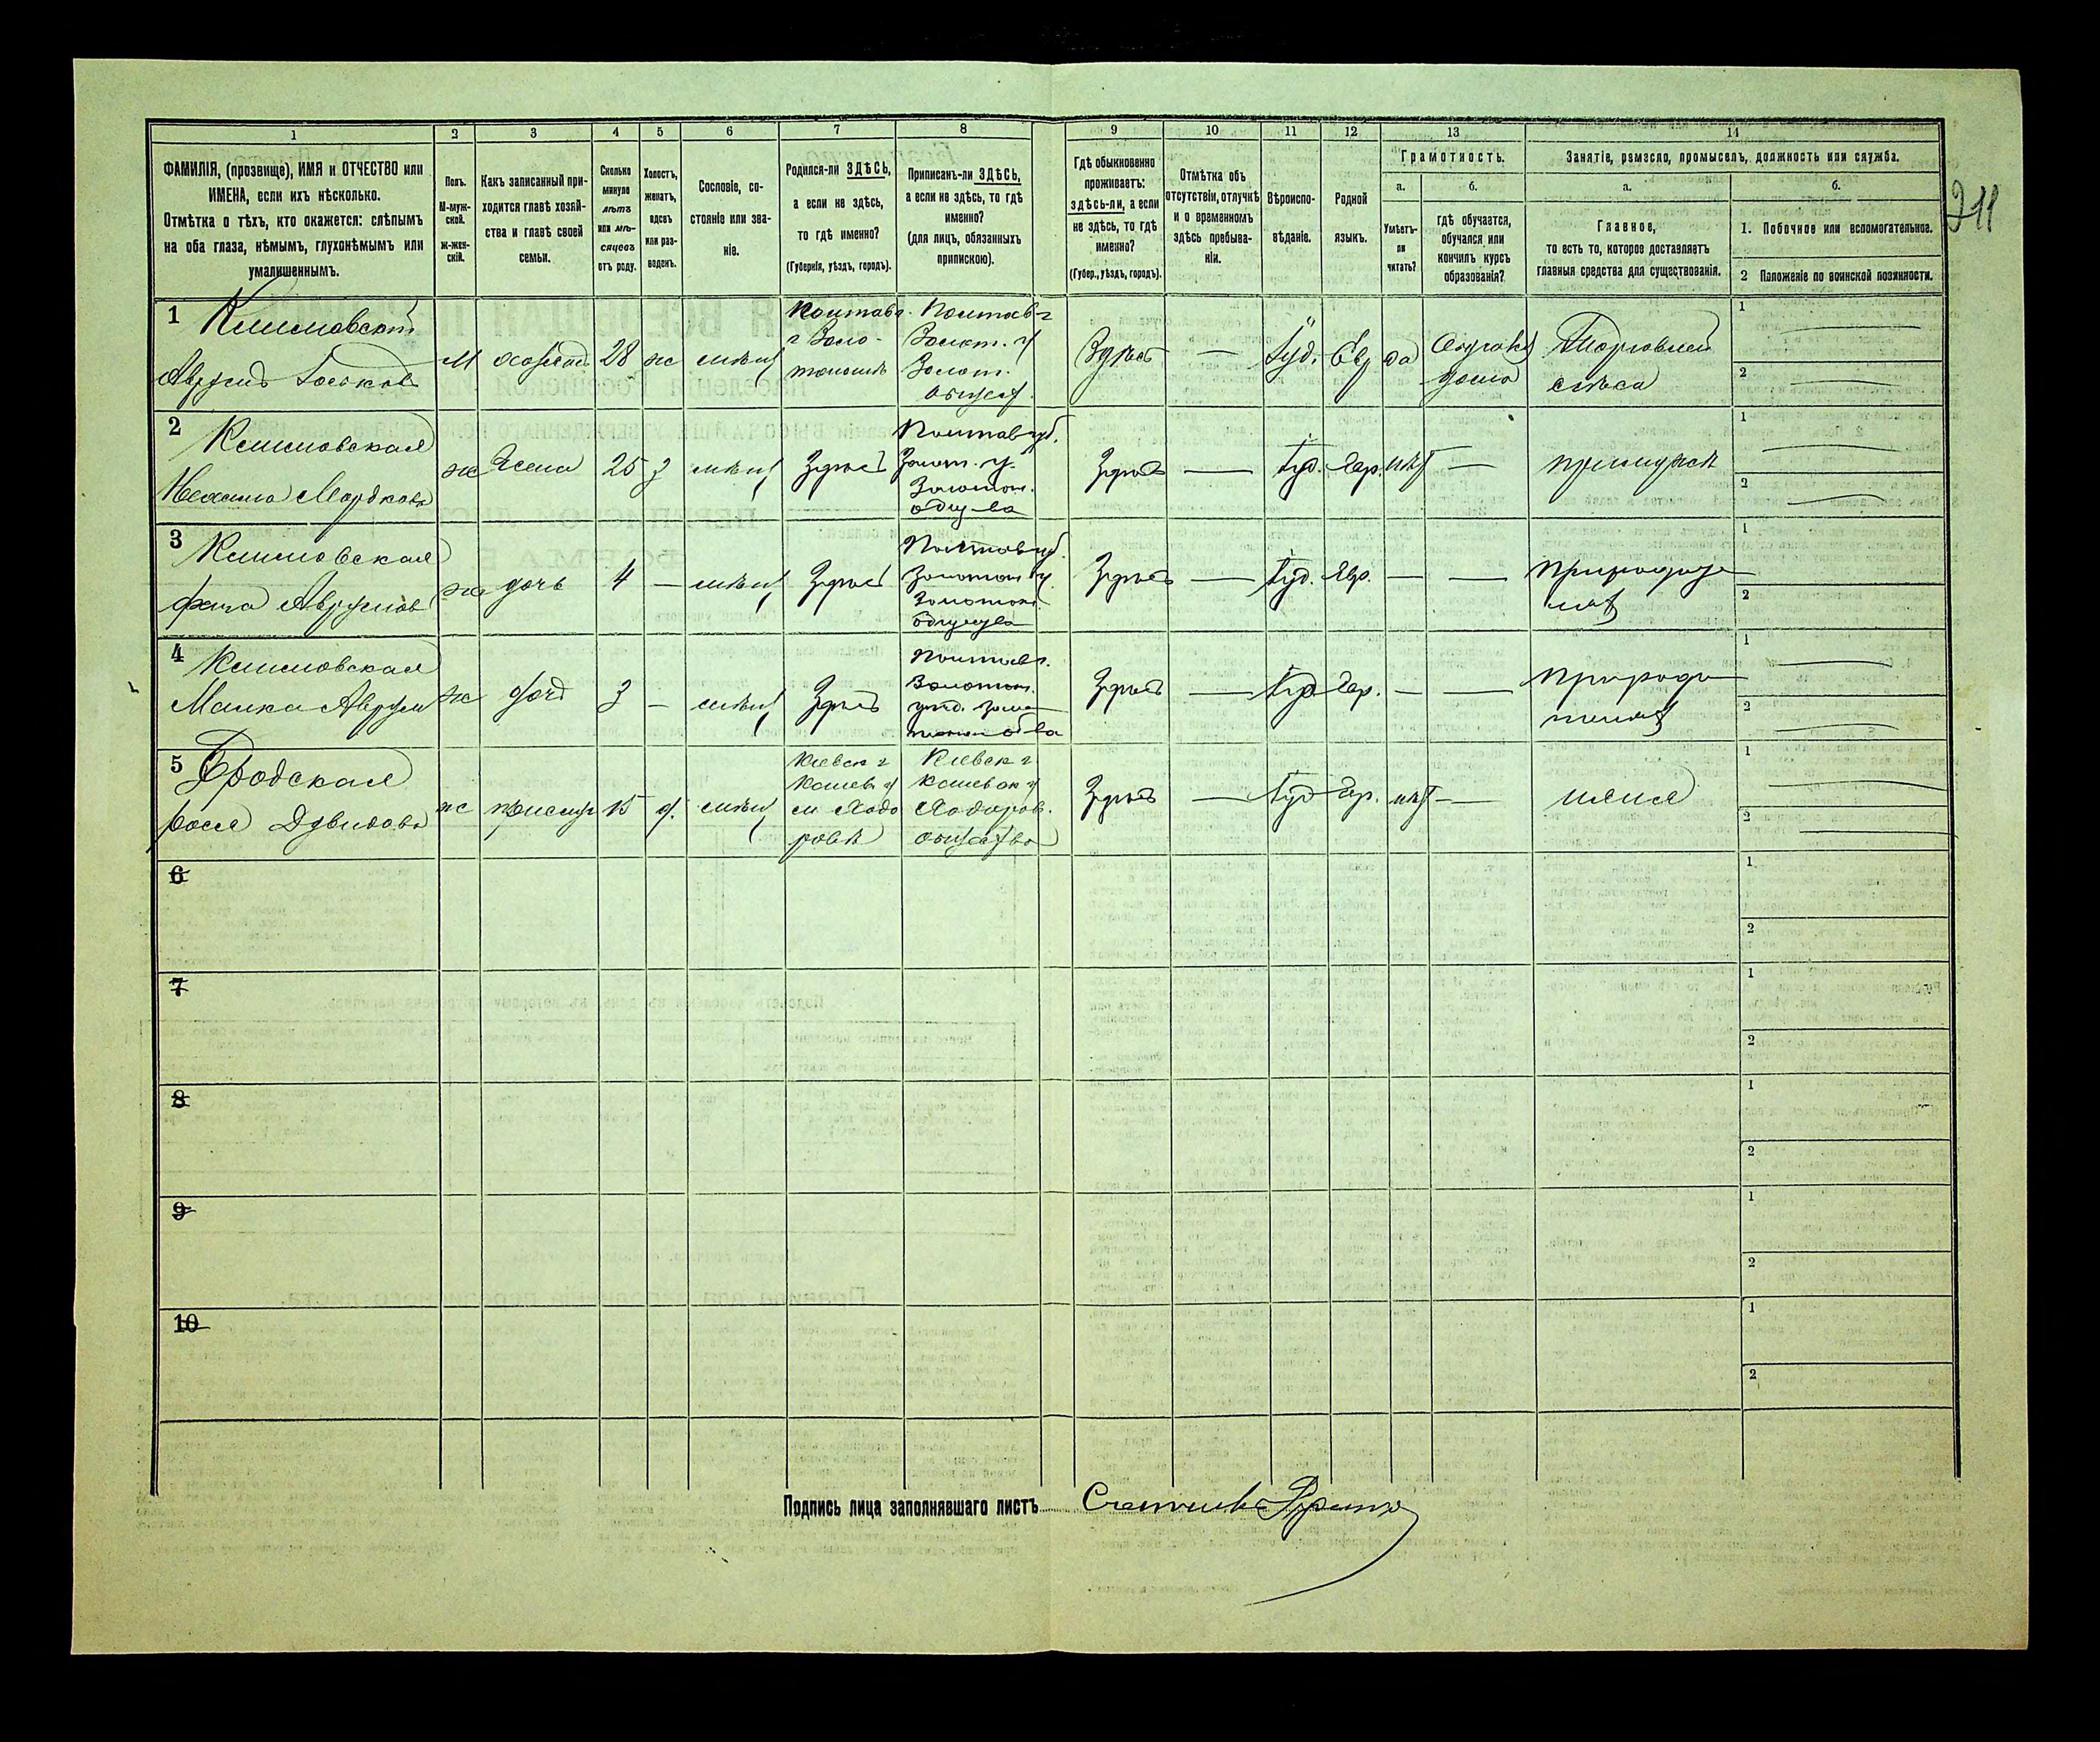 1
2
3
4
5
6
7
8
9
10
11
12
13
14
ФАМИЛІЯ, (прозвище), ИМЯ и ОТЧЕСТВО или
ИМЕНА, если ихъ нѣсколько.
Отмѣтка о тѣхъ, кто окажется: слѣпымъ
на оба глаза, нѣмымъ, глухонѣмымъ или
умалишеннымъ.
Полъ.
М-муж-
ской.
ж-жен-
скій.
Какъ записанный при-
ходится главѣ хозяй-
ства и главѣ своей
семьи.
Сколько
минуло
лѣтъ
или мѣ-
сяцевъ
отъ роду.
Холостъ,
женатъ,
вдовъ
или раз-
веденъ.
Сословіе, со-
стояніе или зва-
ніе.
Родился-ли ЗДѢСЬ,
а если не здѣсь,
то гдѣ именно?
(Губернія, уѣздъ, городъ).
Приписанъ-ли ЗДѢСЬ,
а если не здѣсь, то гдѣ
именно?
(для лицъ, обязанныхъ
припискою).
Гдѣ обыкновенно
проживаетъ:
здѣсь-ли, а если
не здѣсь, то гдѣ
именно?
(Губер., уѣздъ, городъ).
Отмѣтка объ
отсутствіи, отлучкѣ
и о временномъ
здѣсь пребыва-
ніи.
Вѣроиспо-
вѣданіе.
Родной
языкъ.
Грамотность.
а.
б.
Умѣетъ-
ли
читать?
гдѣ обучается,
обучался или
кончилъ курсъ
образованія?
Занятіе, ремесло, промыселъ, должность или служба.
а.
б.
Главное,
то есть то, которое доставляетъ
главныя средства для существованія.
1. Побочное или вспомогательное.
2 Положеніе по воинской повинности.
211
1 Климовскій
Аврумъ
М
28
ж
Полтав г
г Золо-
тоноша
Полтав г
Золот. у
Золот.
Здѣсь
—
Іуд.
Евр
да
дома
Торговлей
1
2
2 Климовская
Нехама Мордков
ж
Жена
25
з
мѣщ
Здѣсь
Полтав губ.
Золот. у.
Золотон.
общ-ва
Здѣсь
—
Іуд.
Евр.
нѣт
—
при мужѣ
1
2
3 Климовская
Аврумов
ж
дочь
4
—
мѣщ
Здѣсь
Полтав губ.
Золотон у
Золотон
Здѣсь
—
Іуд.
Евр.
—
—
При родите
лях
1
2
4 Климовская
Малка Аврум
ж
дочь
3
—
мѣщ
Здѣсь
Полтав г.
Золотон.
Здѣсь
—
Іуд
Евр.
—
—
При роди
телях
1
2
5 Бродская
Давидова
ж
15
д.
мѣщ
Киевск г
м Ходо
ровѣ
Киевск г
Ходоров.
общества
Здѣсь
—
Іуд
Евр.
нѣт
—
няня
1
2
6
1
2
7
1
2
8
1
2
9
1
2
10
1
2
Подпись лица заполнявшаго листъ